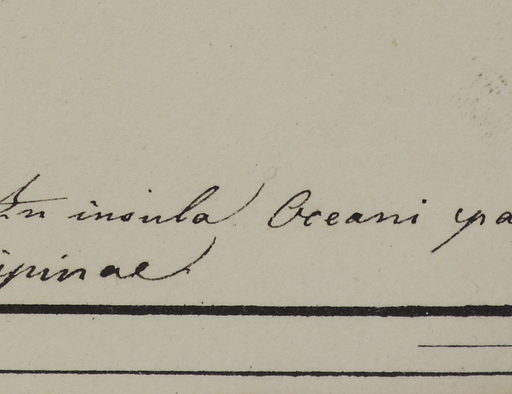 In insula Oceani pa
ipinae